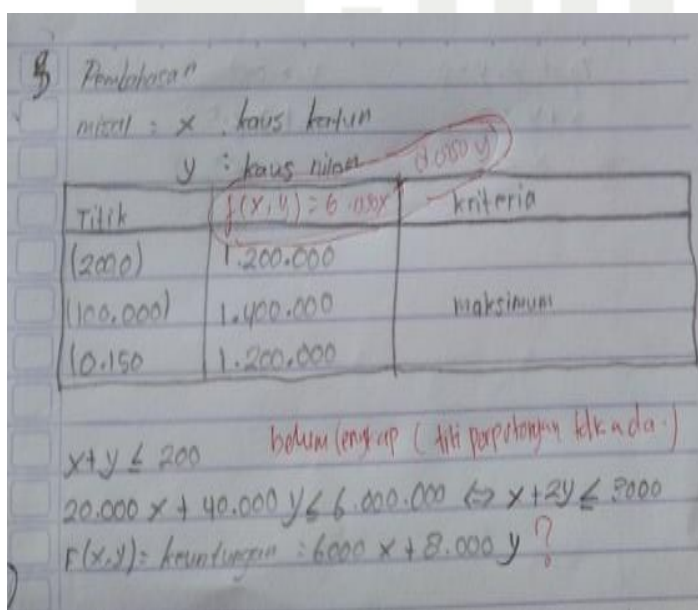 Pembahasan
misal : x : kaus katun
y : kaus nilon
8.000 y)
Titik f(x,y) = 6.000x kriteria
(2000) 1.200.000
(100.000) 1.400.000 maksimum
(0.150 1.200.000
x+y ≤ 200 belum lengkap ( titi perpotongan tdk ada.)
20.000 x + 40.000 y ≤ 6.000.000 ⇔ x+2y ≤ 3000
F(x,y) = keuntungan = 6000 x + 8.000 y ?